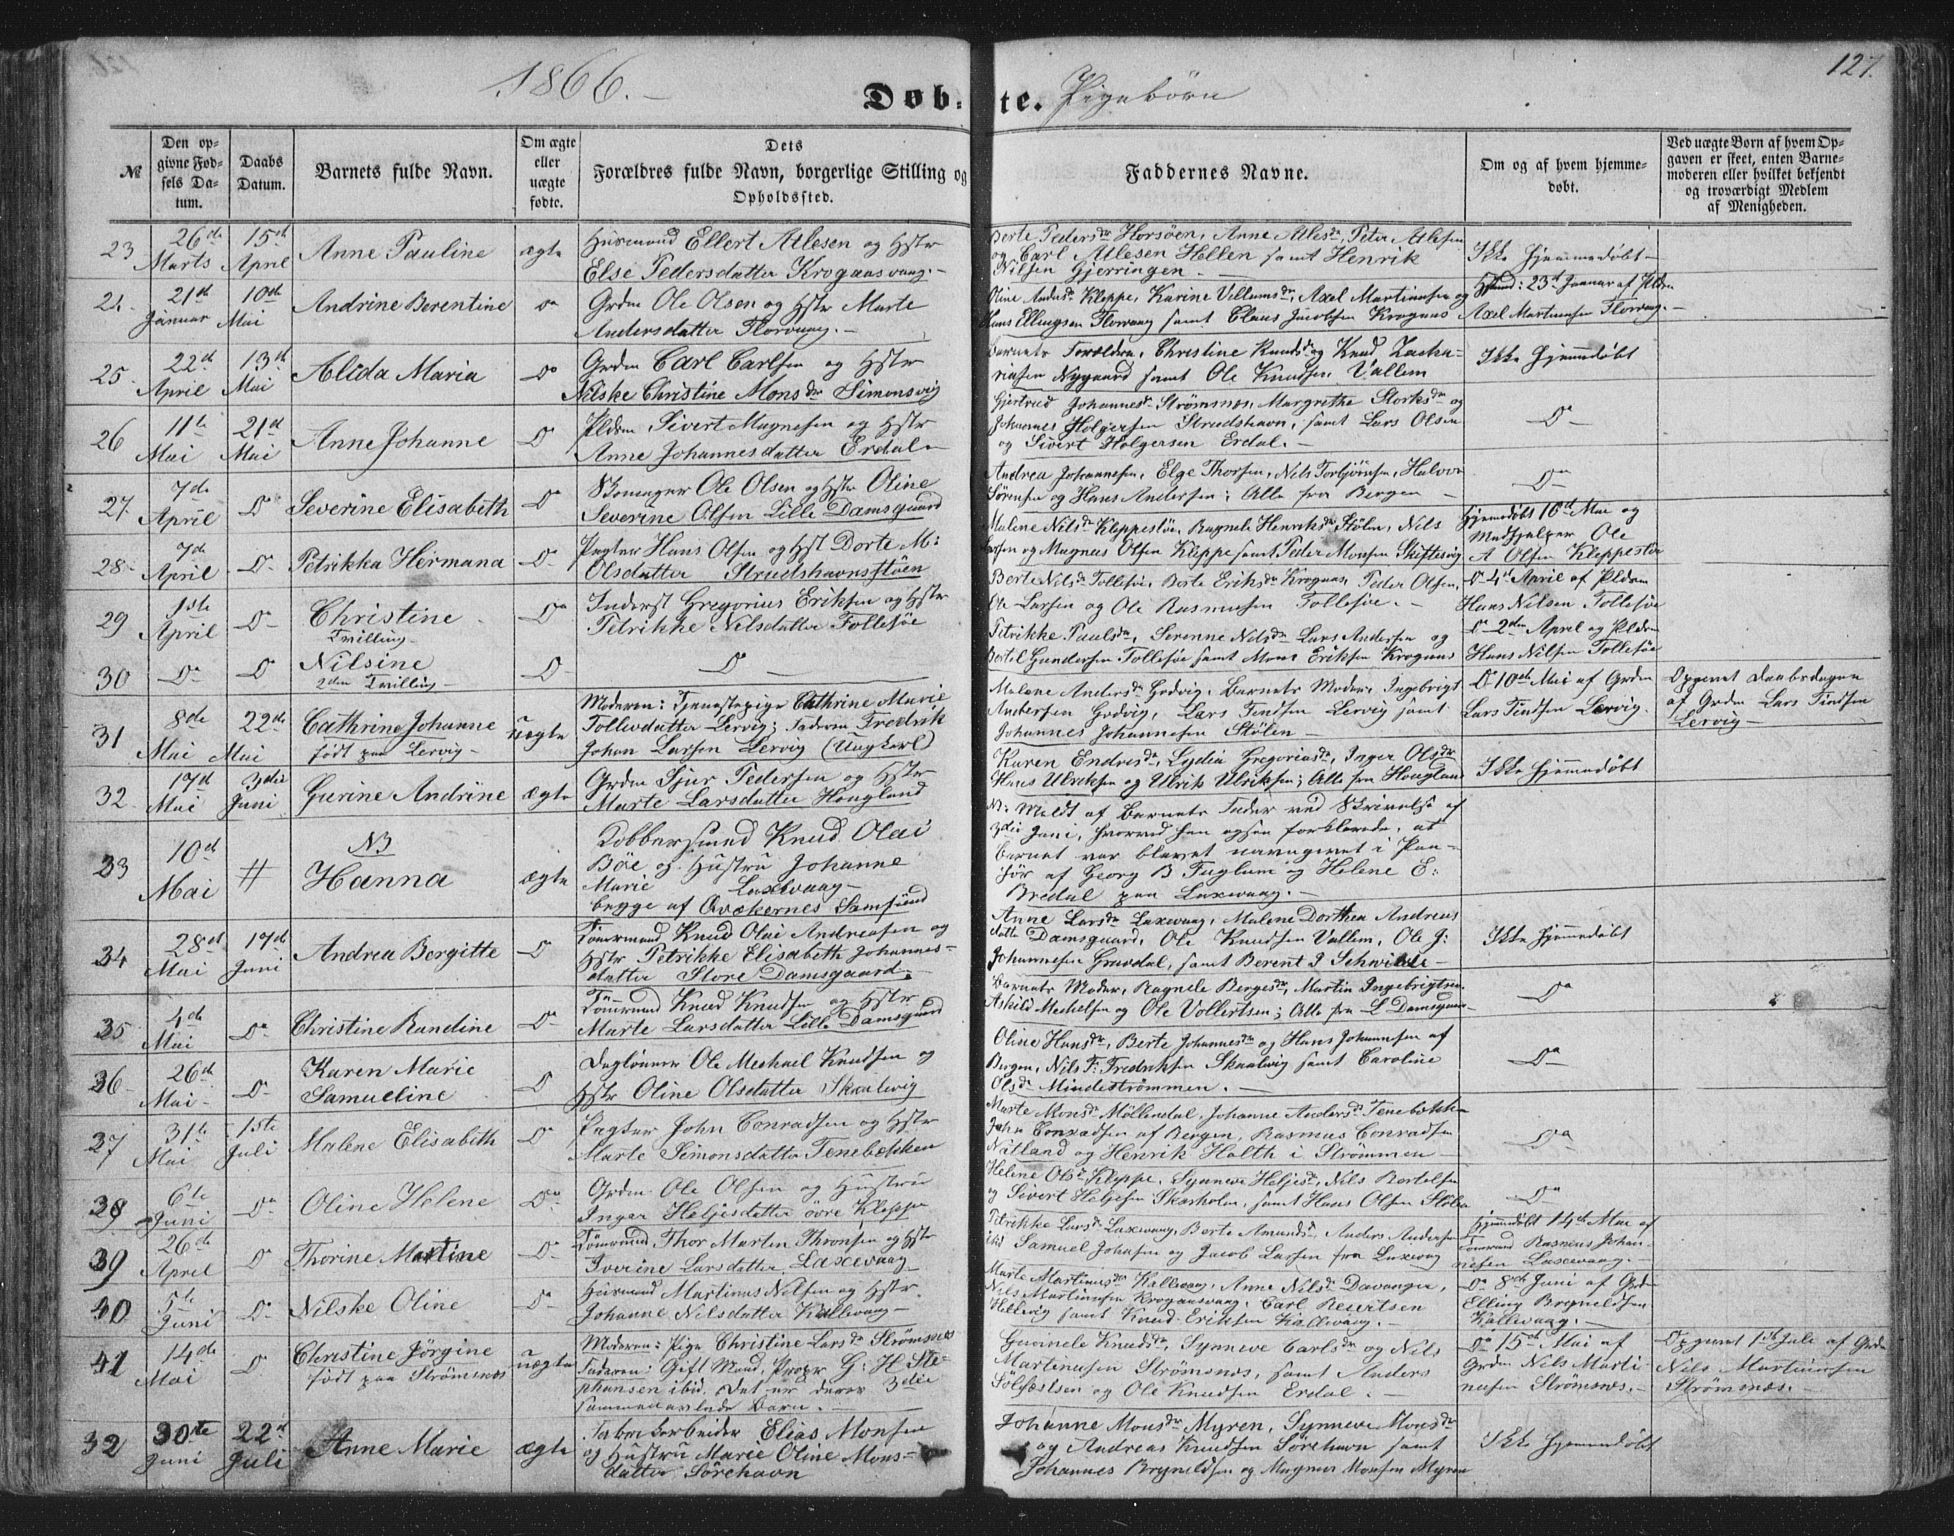 1866.
Døb-te. Pigebörn
127.
№
Den opgivne Fødsels Datum.
Daabs Datum.
Barnets fulde Navn.
Om ægte eller uægte fødte.
Dets Forældres fulde Navn, borgerlige Stilling og Opholdssted.
Faddernes Navne.
Om og af hvem hjemmedøbt.
Ved uægte Børn af hvem Opgaven er skeet, enten Barnemoderen eller hvilket bekjendt og troværdigt Medlem af Menigheden.
23 26de Marts 15de April Anne Pauline ægte
Husmand Ellert Atlesen og Hstr
Else Pedersdatter Krogaasvaag.
Berte Pedersdr Horsøen, Anne Atlesdr, Peter Atlesen
og Carl Atlesen Hellen samt Henrik
Nilsen Gjerringen.
Ikke hjemmedøbt
24. 21de Januar 10de Mai Andrine Berentine do
Grdm Ole Olsen og Hstr Marte
Andersdatter Florvaag.
Oline Andersdr Kleppe, Karine Villumsdr, Axel Martinussen og
Hans Ellingsen Florvaag samt Claus Jacobsen Krogaas
23de Januar af Pldm
Axel Martinussen Florvaag.
25 22de April 13de Mai Alida Maria Do
Grdm Carl Carlsen og Hstr
Nilske Christine Monsdr Simonsvig
Barnets Forældre, Christine Knudsdr og Knud Zacha-
riasen Nygaard samt Ole Knudsen Vallem
Ikke hjemmedøbt
26 11te Mai 21de Mai Anne Johanne Do
Pldm Sivert Magnesen og Hstr
Anne Johannesdatter Erdal
Gjertrud Johannesdr Strømsnes, Margrethe Storksdr og
Johannes Holgersen Strudshavn, samt Lars Olsen
og Sivert Holgersen Erdal.
Do
27. 7de April Do Severine Elisabeth Do
Skomager Ole Olsen og Hstr Oline
Severine Olsen Lille Damsgaard
Andrea Johannesen, Elge Thorsen, Nils Torbjörnsen, Halvor
Sørensen og Hans Andersen; Alle fra Bergen
Do
28. 7de April Do Petrikka Hermana Do
Pagter Hans Olsen og Hst Dorte M:
Olsdatter Strudshavnsstöen
Malene Nilsdr Kleppestö, Ragnele Henriksdr Stölen, Nils
Larsen og Magnus Olsen Kleppe samt Peder Monsen Skiftesvig
hjemmedøbt 10de Mai og
Medhjelper Ole
A Olsen Kleppestö
29 1ste April Do Christine Do
Tvilling
Inderst Gregorius Eriksen og Hstr
Petrikke Nilsdatter Follesöe
Berte Nilsdr Follesöe, Berte Eriksdr Krogaas, Peder Olsen,
Ole Larsen og Ole Rasmussen Follesöe.
Do 4de April af Pldm
Hans Nilsen Follesöe
30 Do Do Nilsine Do Do
2den Tvilling
Petrikke Paulsdr, Serenne Nilsdr Lars Andersen og
Bertel Gundersen Follesöe samt Mons Eriksen Krogaas
Do 2den April og Pldm
Hans Nilsen Follesöe
31 8de Mai 22de Mai Cathrine Johanne uægte
født paa Lervig
Moderen: Tjenestepige Cathrine Marie
Follusdatter Lervig; Faderen Fredrik
Johan Larsen Lervig (Ungkarl)
Malene Andersdr Godvig, Barnets Moder, Ingebrigt
Andersen Godvig, Lars Findsen Lervig samt
Johannes Johannesen Stölen
Do 10de Mai af Grdm
Lars Findsen Lervig.
Opgivet Daabsdagen
af Grdm Lars Findsen
Lervig
32. 17de Mai 3die Juni Gurine Andrine ægte
Grdm Sjur Pedersen og Hstr
Marte Larsdatter Haagland
Karen Endresdr, Lydia Gregoriusdr, Inger Olsdr
Hans Ulriksen og Ulrik Ulriksen; Alle fra Haagland
Ikke hjemmedøbt
33 10de Mai # NB Hanna ægte
Kobbersmed Knud Olai
Böe og Hustru Johanne
Marie Laxevaag
begge af Qvækernes Samfund
N: Meldt af Barnets Fader ved Skrivelse af
3die Juni, hvorved han ogsaa forklarede, at
Barnet var blevet navngivet i Paa-
hør af Georg B Fuglum og Helene E:
Bredal paa Laxevaag.
34 28de Mai 17de Juni Andrea Bergitte Do
Tömrmand Knud Olai Andreasen og
Hstr Petrikke Elisabeth Johannes-
datter Store Damsgaard.
Anne Larsdr Laxevaag, Malene Dorthea Andreas
datter Damsgaard, Ole Knudsen Vallem, Ole J:
Johannesen Gravdal, samt Berent J Schwilde
Ikke hjemmedøbt
35 4de Mai Do Christine Randine Do
Tömmd Knud Knudsen og Hstr
Marte Larsdatter Lille Damsgaard
Barnets Moder, Ragnele Bergesdr, Martin Ingebrigtsen
Askild Mechelsen og Ole Vollertsen; Alle fra L Damsgaard
Do
36 26de Mai Do Karen Marie Do
Samueline
Daglönner Ole Mechael Knudsen og
Hstr Oline Olsdatter Skaalevig
Oline Hansdr, Berte Johannesdr og Hans Johannesen af
Bergen, Nils F: Fredriksen Skaalevig samt Caroline
Olsdr Mindeströmmen.
Do
37 31te Mai 1ste Juli Malene Elisabeth Do
Pagter John Conradsen og Hstr
Marte Simonsdatter Tenebekken
Marte Monsdr Möllendal, Johanne Andersdr Tenebekken
John Conradsen af Bergen, Rasmus Conradsen
Natland og Henrik Holth i Strömmen
Do
38 6te Juni Do Oline Helene Do
Grdm Ole Olsen og Hustru
Inger Heljesdatter övre Kleppe
Helene Olsdr Kleppe, Synneve Heljesdr, Nils Bertelsen
og Sivert Heljesen Skarholm, samt Hans Olsen Stölen
Do
39 26de April Do Thorine Martine Do
Tömrmand Thor Martin Thronsen og Hstr
Iverine Larsdatter Laxevaag
Petrikke Larsdr Laxevaag, Berte Amundsdr, Anders Andersen
ibid Samuel Johnsen og Jacob Larsen fra Laxevaag
Hjemmedøbt 14de Mai af
Tömrmand Rasmus Johan-
nesen Laxevaag.
40 5te Juni Do Nilske Oline Do
Husmand Martinus Nilsen og Hstr.
Johanne Nilsdatter Kallevaag
Marte Martinusdr Kallevaag, Anne Nilsdr Davanger,
Nils Martinussen Krogaasvaag, Carl Reiertsen
Hellevig samt Knud Eriksen Kallevaag.
Do 8de Juni af Grd
Elling Brynildsen
Kallevaag.
41 14de Mai Do Christine Jörgine uægte
født paa Strömsnes
Moderen: Pige Christine Larsdr Strömsnes
Faderen: Gift Mand, Propr G: H Ste-
phansen ibid. Det er deres 3die
sammenavlede Barn.
Gurinele Knudsdr, Synneve Carlsdr og Nils
Martinusen Strömsnes, samt Anders
Sölfestsen og Ole Knudsen Erdal.
Do 15de Mai af
Grdm Nils Marti-
nusen Strömsnes.
Opgivet 1ste Juli af Grdm
Nils Martinussen
Strömsnes.
32 30te Juni 22de Juli Anne Marie ægte
Elias Monsen
og Hustru Marie Oline Mons-
datter Sörehavn
Johanne Monsdr Myren, Synneve Monsdr
og Andreas Knudsen Sörehavn samt
Johannes Brynildsen og Magnus Monsen Myren
Ikke hjemmedøbt